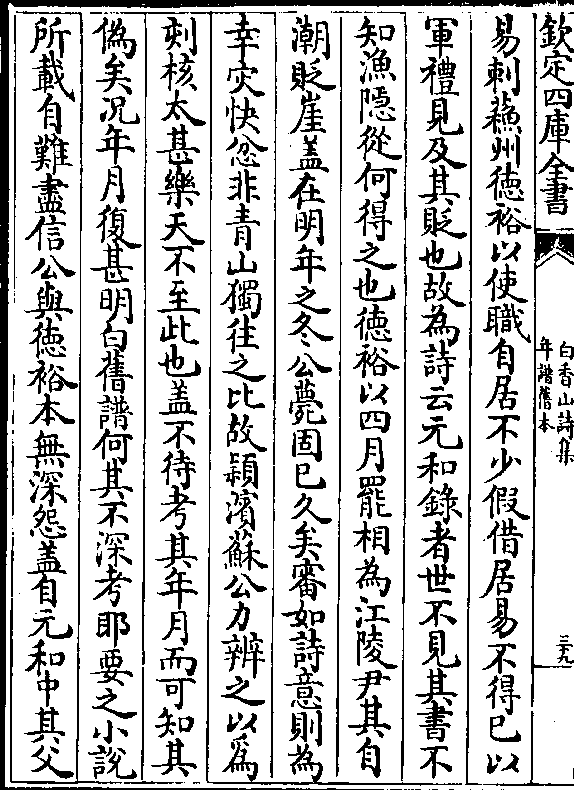 欽定四庫全書
白香山詩集
年譜舊本
三十九
易刺蘇州德裕以使職自居不少假借居易不得已以
軍禮見及其貶也故為詩云元和錄者世不見其書不
知漁隱從何得之也德裕以四月罷相為江陵尹其自
潮貶崖盖在明年之冬公薨固已久矣審如詩意則為
幸灾快忿非青山獨往之比故潁濱蘇公力辨之以為
刻核太甚樂天不至此也盖不待考其年月而可知其
偽矣况年月復甚明白舊譜何其不深考耶要之小說
所載自難盡信公與徳裕本無深怨盖自元和中其父